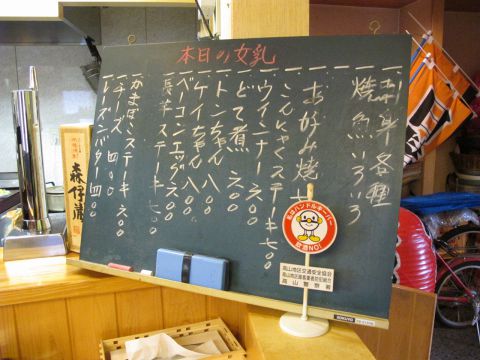 本日の女乳
一刺身各種
一焼魚いろいろ
一お好み焼
一こんにゃくステーキ 五〇〇
一ウインナー 五〇〇
一どて煮 五〇〇
一トンちゃん 八〇〇
一ケイちゃん 八〇〇
一ベーコンエッグ 五〇〇
一長芋ステーキ 五〇〇
一かまぼこステーキ 五〇〇
一チーズ 四〇〇
一レーズンバター 四〇〇
森伊蔵
私はハンドルキーパー
飲酒NO!
高山地区交通安全協会
高山警察署